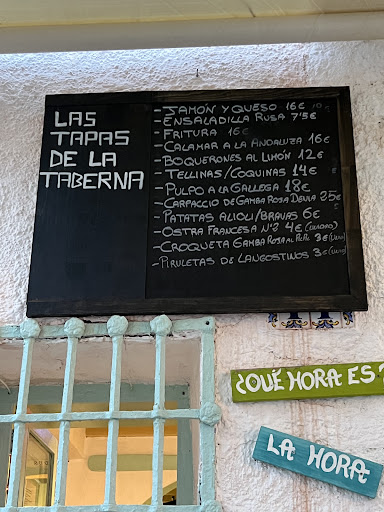 LAS
TAPAS
DE LA
TABERNA
- JAMÓN Y QUESO 16€ 10€
- ENSALADILLA RUSA 7'5€
- FRITURA 16€
- CALAMAR A LA ANDALUZA 16€
- BOQUERONES AL LIMÓN 12€
- TELLINAS/COQUINAS 14€
- PULPO A LA GALLEGA 18€
- CARPACCIO DE GAMBA ROSA DENIA 25€
- PATATAS ALIOLI/BRAVAS 6€
- OSTRA FRANCESA Nº2 4€ (UNIDAD)
- CROQUETA GAMBA ROSA AL PILPIL 3€ (UNID)
- PIRULETAS DE LANGOSTINOS 3€ (UNID)
¿QUÉ HORA ES?
LA HORA